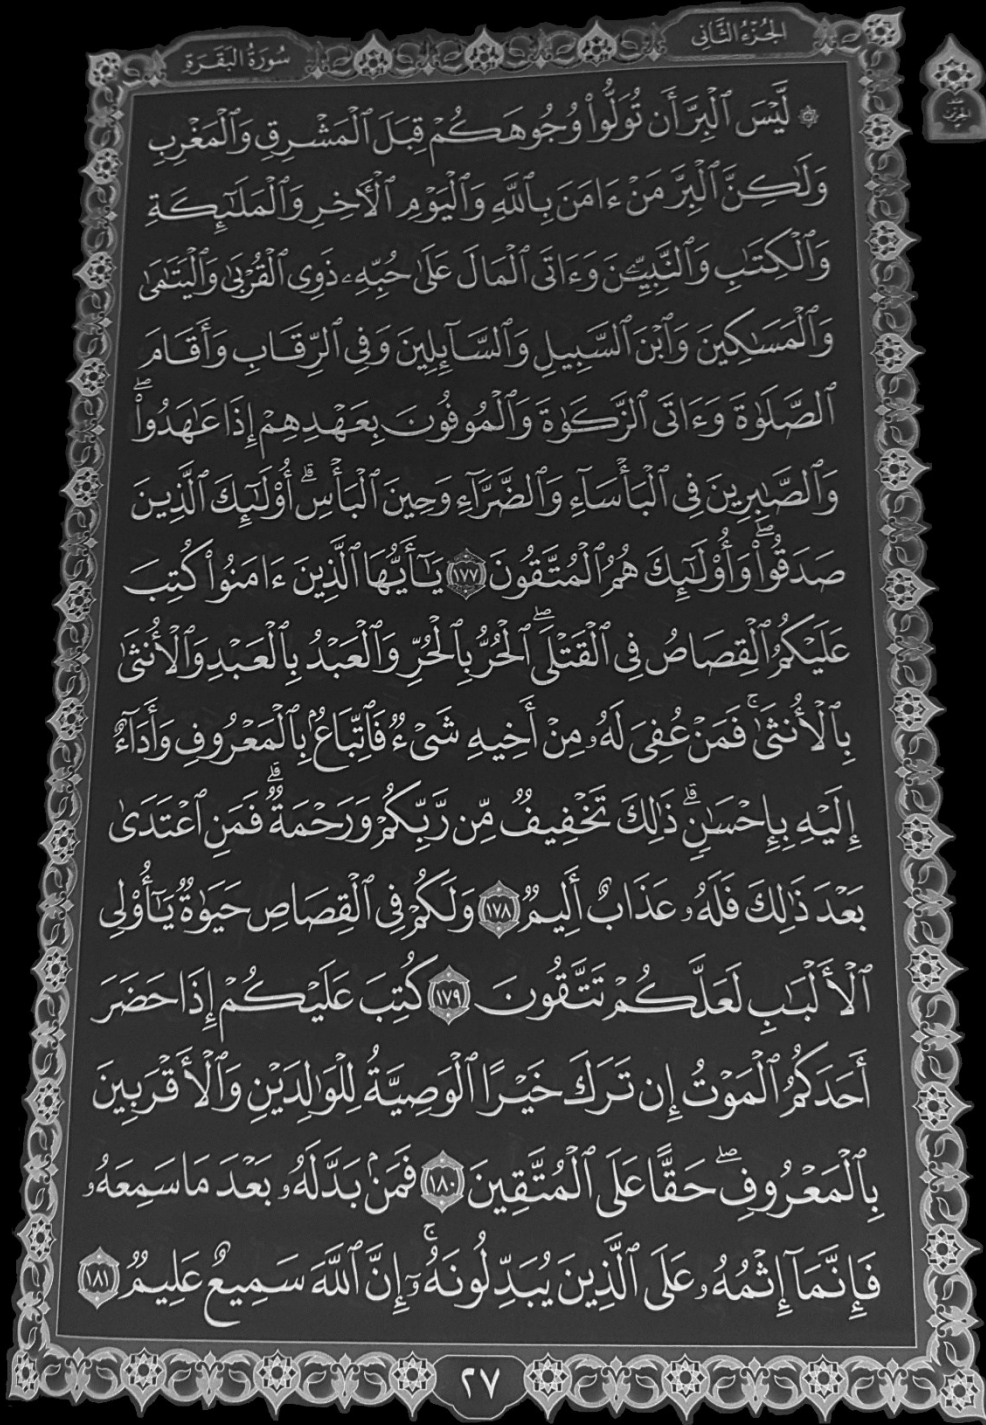 الجُزْءُ الثَّانِى
سُورَةُ البَقَرَةِ
۞ لَّيْسَ ٱلْبِرَّ أَن تُوَلُّوا۟ وُجُوهَكُمْ قِبَلَ ٱلْمَشْرِقِ وَٱلْمَغْرِبِ
وَلَـٰكِنَّ ٱلْبِرَّ مَنْ ءَامَنَ بِٱللَّهِ وَٱلْيَوْمِ ٱلْـَٔاخِرِ وَٱلْمَلَـٰٓئِكَةِ
وَٱلْكِتَـٰبِ وَٱلنَّبِيِّـۧنَ وَءَاتَى ٱلْمَالَ عَلَىٰ حُبِّهِۦ ذَوِى ٱلْقُرْبَىٰ وَٱلْيَتَـٰمَىٰ
وَٱلْمَسَـٰكِينَ وَٱبْنَ ٱلسَّبِيلِ وَٱلسَّآئِلِينَ وَفِى ٱلرِّقَابِ وَأَقَامَ
ٱلصَّلَوٰةَ وَءَاتَى ٱلزَّكَوٰةَ وَٱلْمُوفُونَ بِعَهْدِهِمْ إِذَا عَـٰهَدُوا۟ۖ
وَٱلصَّـٰبِرِينَ فِى ٱلْبَأْسَآءِ وَٱلضَّرَّآءِ وَحِينَ ٱلْبَأْسِۗ أُو۟لَـٰٓئِكَ ٱلَّذِينَ
صَدَقُوا۟ۖ وَأُو۟لَـٰٓئِكَ هُمُ ٱلْمُتَّقُونَ ١٧٧ يَـٰٓأَيُّهَا ٱلَّذِينَ ءَامَنُوا۟ كُتِبَ
عَلَيْكُمُ ٱلْقِصَاصُ فِى ٱلْقَتْلَىۖ ٱلْحُرُّ بِٱلْحُرِّ وَٱلْعَبْدُ بِٱلْعَبْدِ وَٱلْأُنثَىٰ
بِٱلْأُنثَىٰۚ فَمَنْ عُفِىَ لَهُۥ مِنْ أَخِيهِ شَىْءٌ فَٱتِّبَاعٌۢ بِٱلْمَعْرُوفِ وَأَدَآءٌ
إِلَيْهِ بِإِحْسَـٰنٍۗ ذَٰلِكَ تَخْفِيفٌ مِّن رَّبِّكُمْ وَرَحْمَةٌۗ فَمَنِ ٱعْتَدَىٰ
بَعْدَ ذَٰلِكَ فَلَهُۥ عَذَابٌ أَلِيمٌ ١٧٨ وَلَكُمْ فِى ٱلْقِصَاصِ حَيَوٰةٌ يَـٰٓأُو۟لِى
ٱلْأَلْبَـٰبِ لَعَلَّكُمْ تَتَّقُونَ ١٧٩ كُتِبَ عَلَيْكُمْ إِذَا حَضَرَ
أَحَدَكُمُ ٱلْمَوْتُ إِن تَرَكَ خَيْرًا ٱلْوَصِيَّةُ لِلْوَٰلِدَيْنِ وَٱلْأَقْرَبِينَ
بِٱلْمَعْرُوفِۖ حَقًّا عَلَى ٱلْمُتَّقِينَ ١٨٠ فَمَنۢ بَدَّلَهُۥ بَعْدَ مَا سَمِعَهُۥ
فَإِنَّمَآ إِثْمُهُۥ عَلَى ٱلَّذِينَ يُبَدِّلُونَهُۥٓۚ إِنَّ ٱللَّهَ سَمِيعٌ عَلِيمٌ ١٨١
٢٧